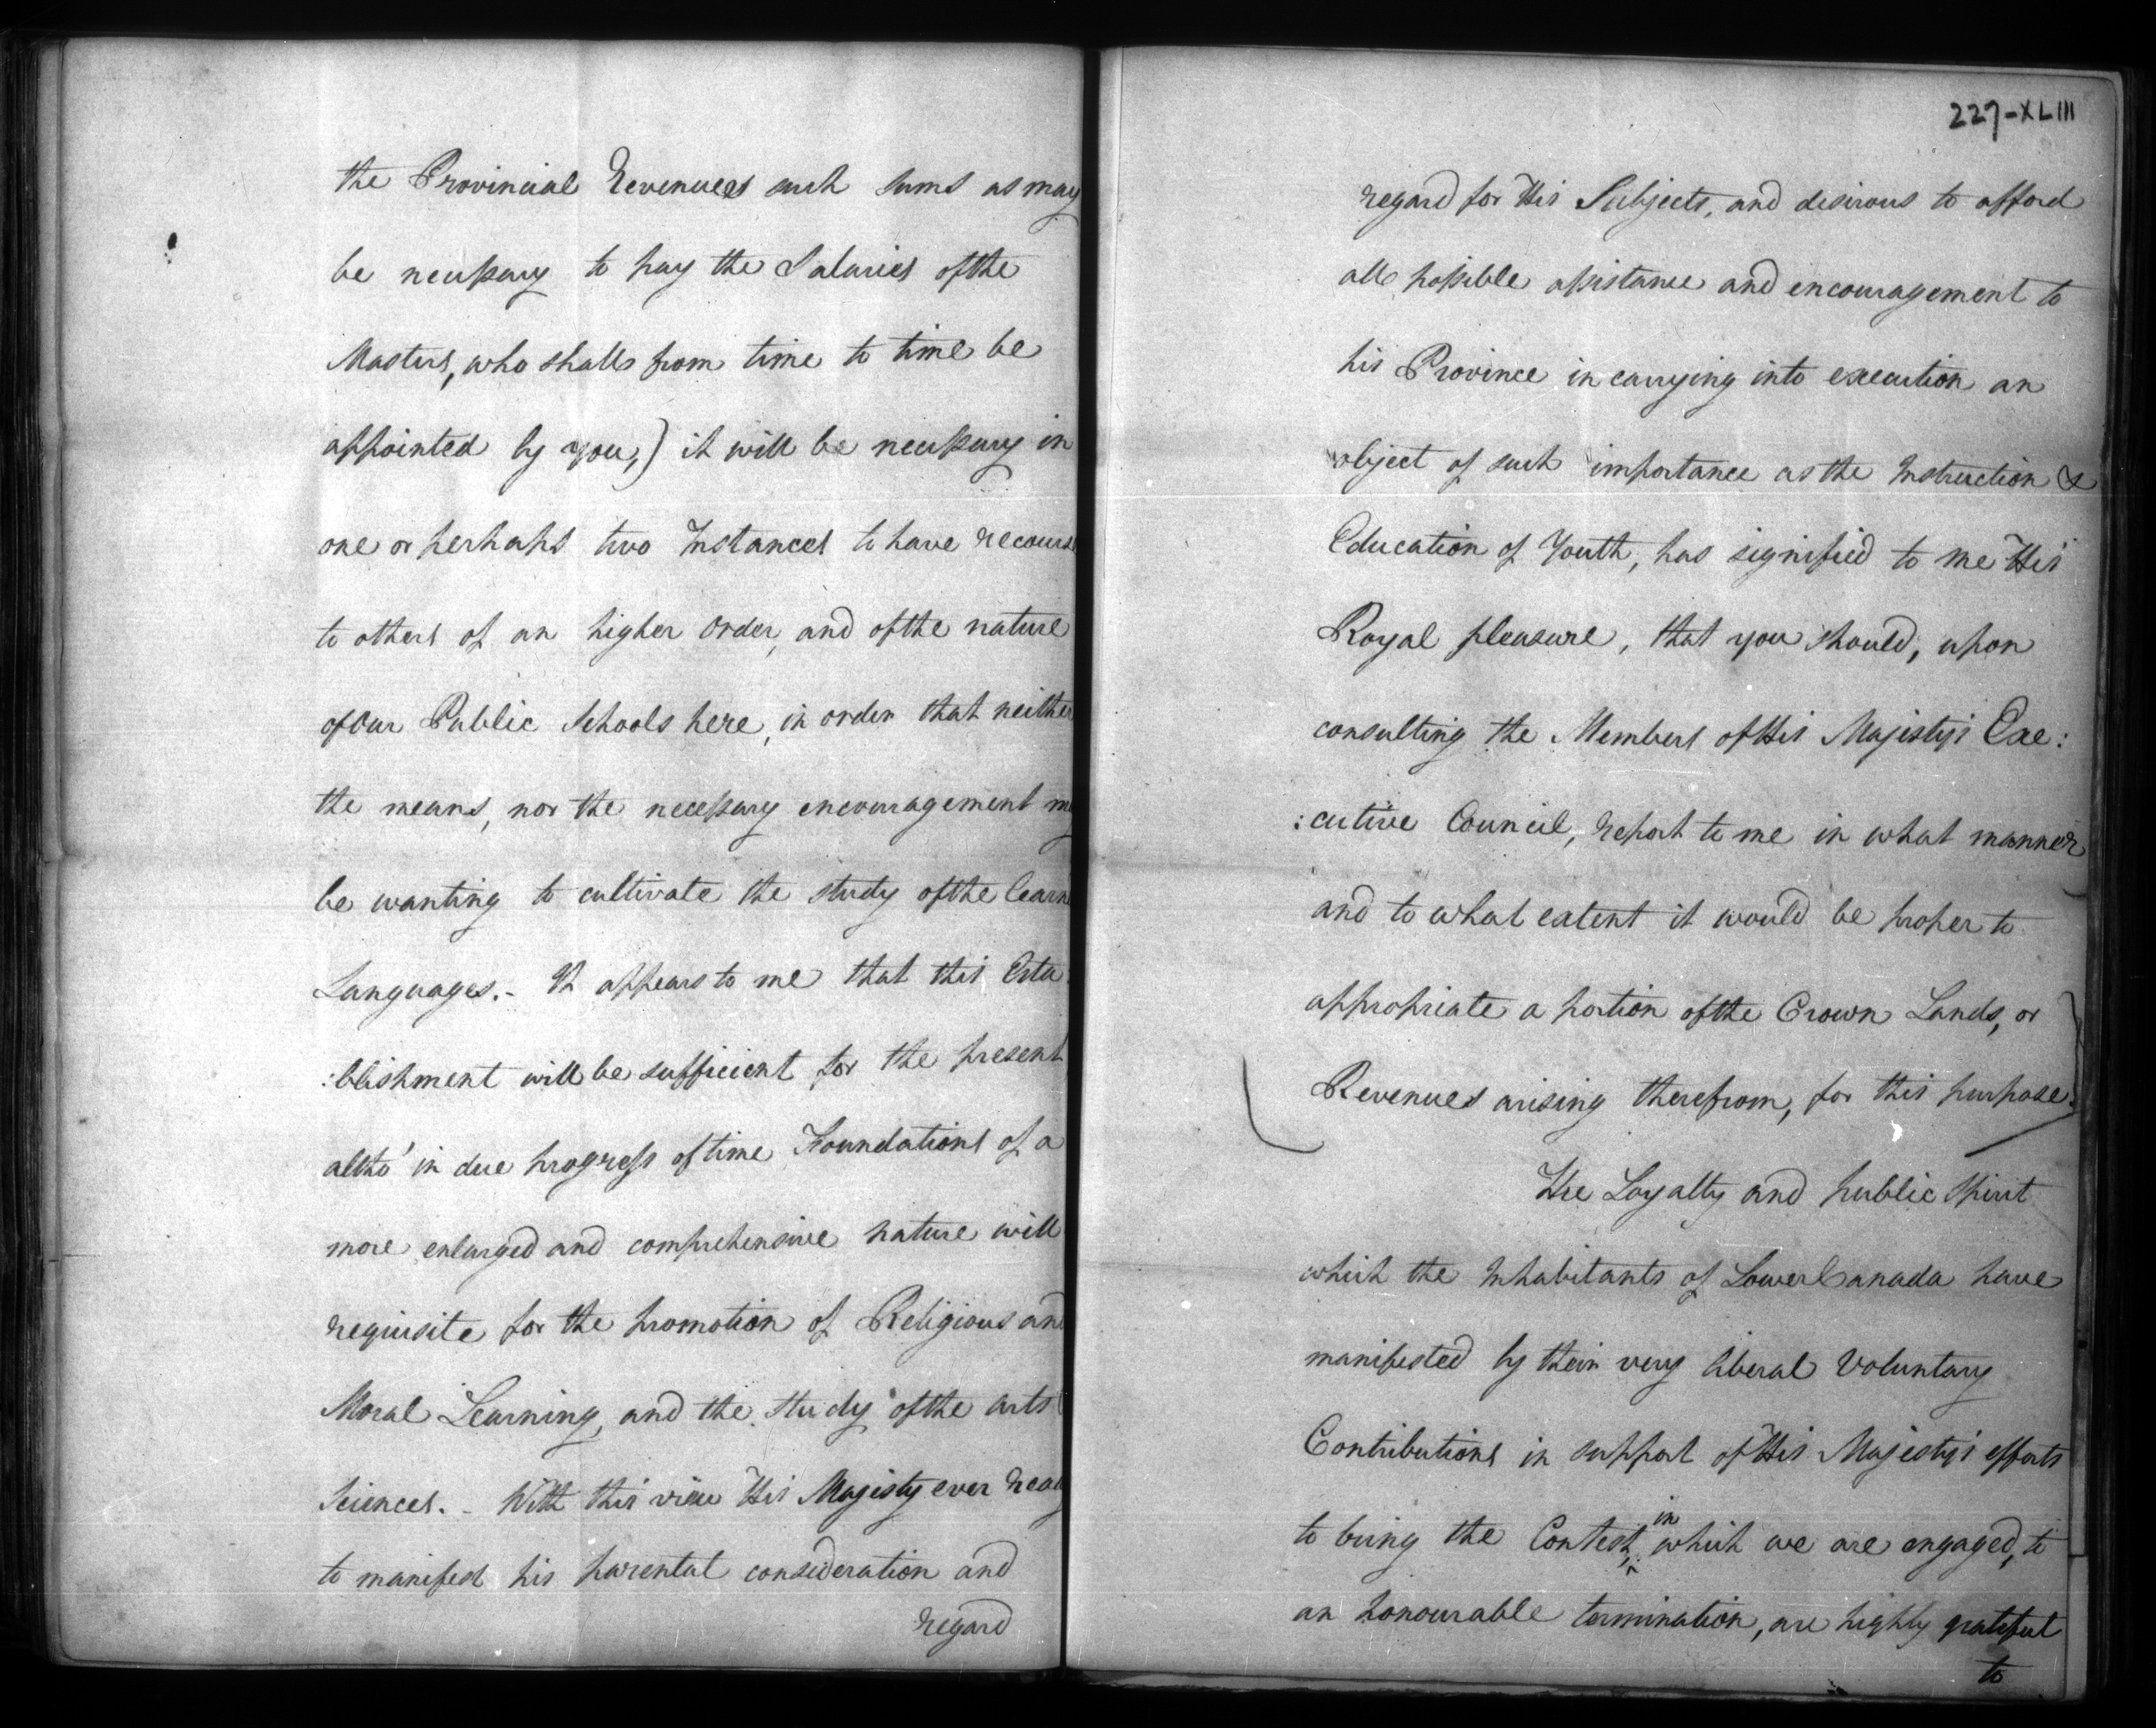 the Provincial Revenues such sums as may
be necessary to pay the Salaries of the
Masters, who shall from time to time be
appointed by you,) it will be necessary in
one or perhaps two Instances to have recourse
to others of an higher Order, and of the nature
of our Public Schools here, in order that neither
the means, nor the necessary encouragement may
be wanting to cultivate the study of the learn
Languages. - It appears to me that this Esta:
:blishment will be sufficient for the present
altho' in due progress of time Foundations of a
more enlarged and comprehensive nature will
requisite for the promotion of Religious and
Moral Learning, and the Study of the arts
Sciences. - With this view His Majesty ever ready
to manifest his parental consideration and
regard
227-XLIII
regard for His Subjects, and desirous to afford
all possible assistance and encouragement to
his Province in carrying into execution an
object of such importance as the Instruction &
Education of Youth, has signified to me His
Royal pleasure, that you should, upon
consulting the Members of His Majesty's Exe:
:cutive Council, report to me in what manner
and to what extent it would be proper to
appropriate a portion of the Crown Lands, or
Revenues arising therefrom, for this purpose.
The Loyalty and public Spirit
which the Inhabitants of Lower Canada have
manifested by their very liberal Voluntary
Contributions in support of His Majesty's efforts
to bring the Contest, in which we are engaged, to
an honourable termination, are highly grateful
to